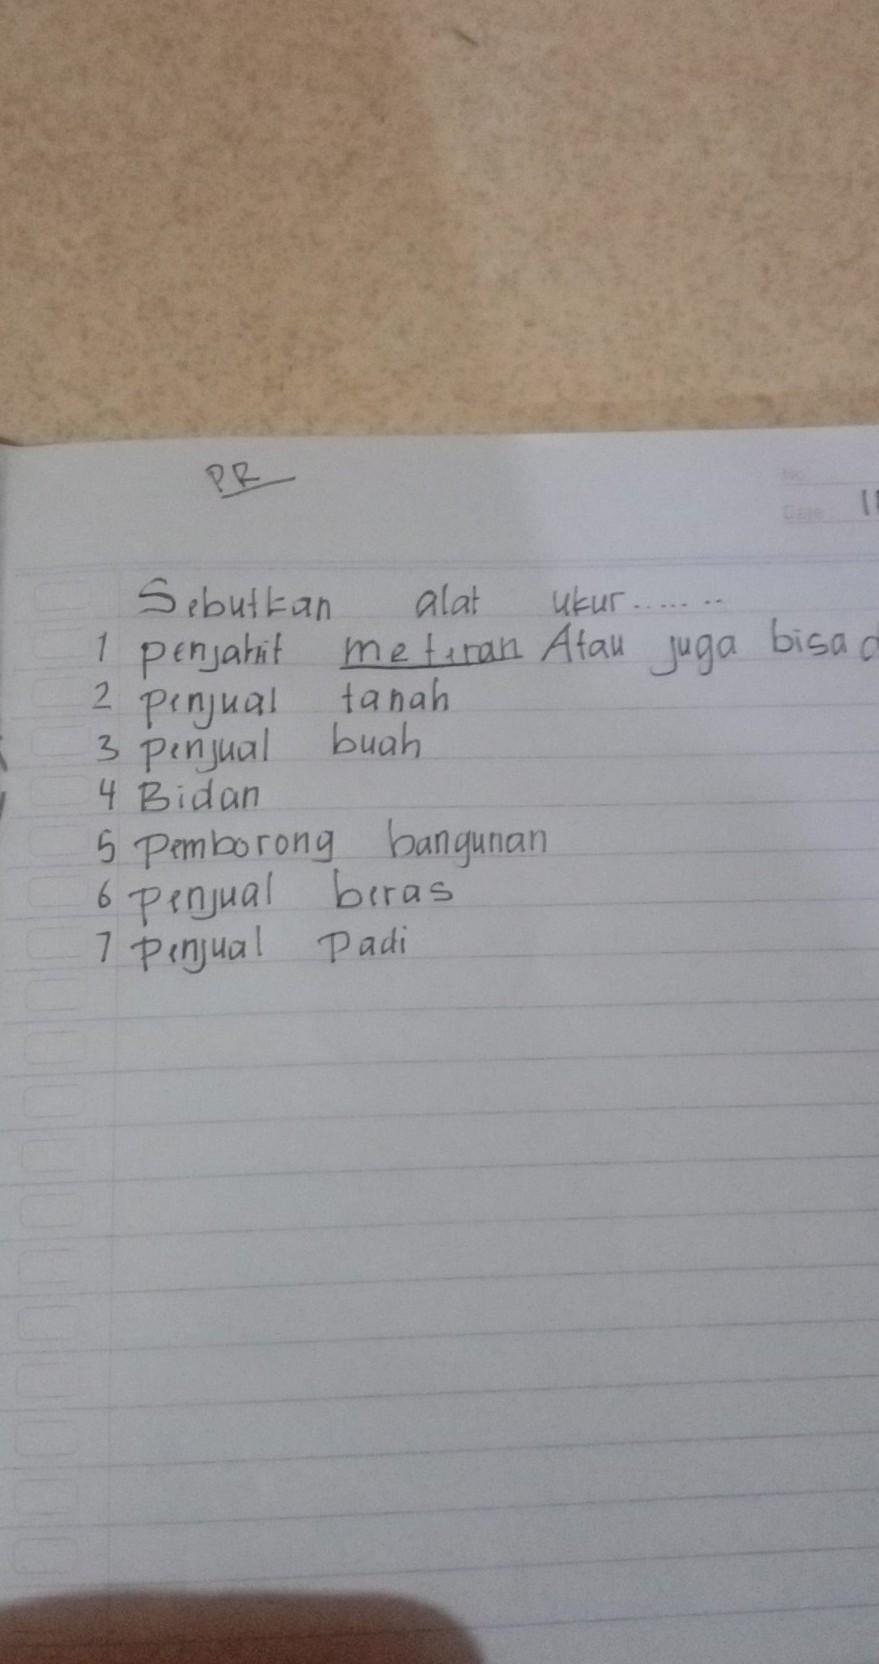 PR
No
Date: 11
Sebutkan alat ukur........
1 penjahit meteran Atau juga bisa
2 penjual tanah
3 penjual buah
4 Bidan
5 pemborong bangunan
6 penjual beras
7 penjual Padi